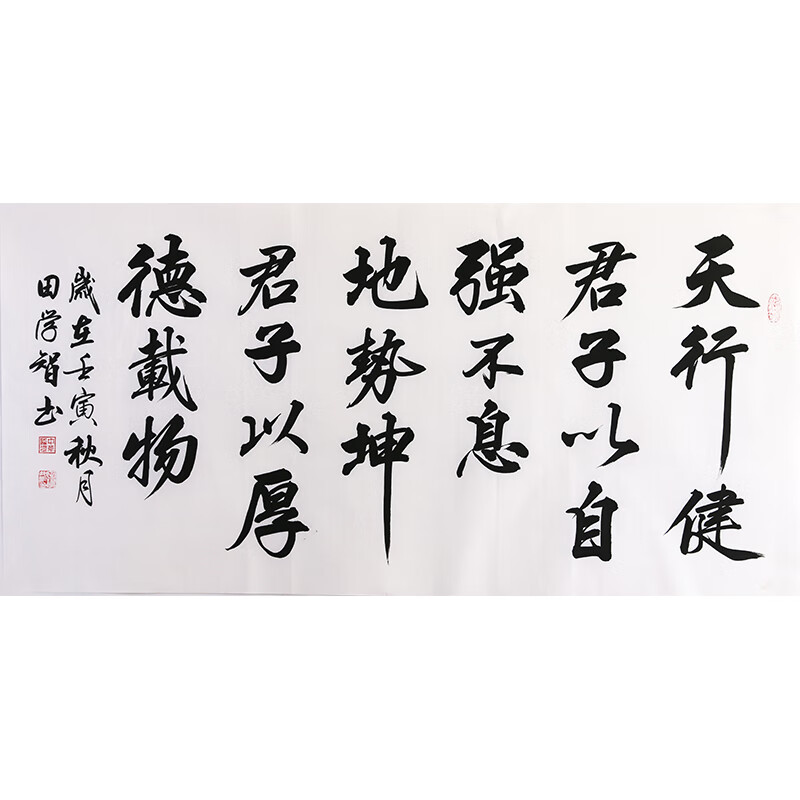 天行健
君子以自
强不息
地势坤
君子以厚
德載物
歲在壬寅秋月
田学智书